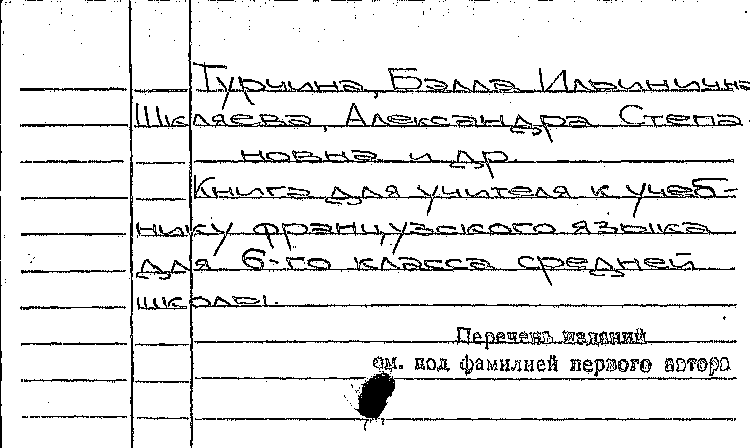 Турчина, Бэлла Ильинична
Шкляева, Александра Степа-
новна и др.
Книга для учителя к учеб-
нику французского языка
для 6-го класса средней
школы.
Перечень изданий
см. под фамилией первого автора